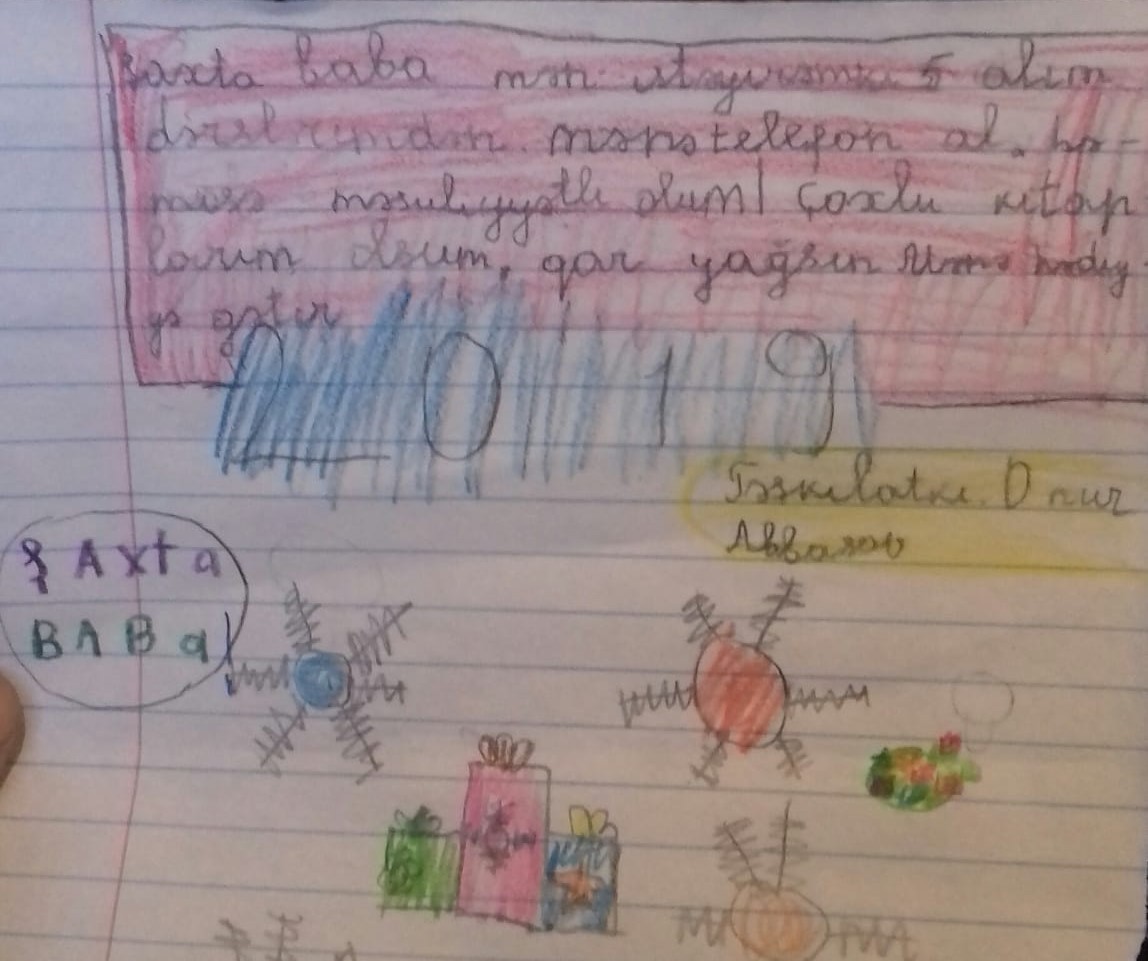 Şaxta baba mən istəyirəmki 5 alım
dərslərimdən. mənə telefon al. hə-
mişə məsuliyyətli olum! Çoxlu kitap
larım olsum, qar yağsın mənə hədiy-
yə gətir
2019
Təşkilatkı. Onur
Abbasov
ŞAxta
BABa